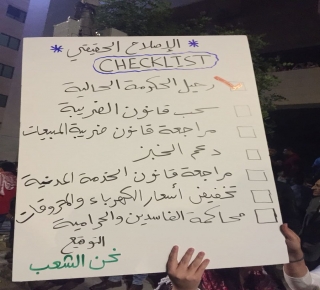 * الإصلاح الحقيقي *
CHECKLIST
رحيل الحكومة الحالية
سحب قانون الضريبة
مراجعة قانون ضريبة المبيعات
دعم الخبز
مراجعة قانون الخدمة المدنية
تخفيض أسعار الكهرباء والمحروقات
محاكمة الفاسدين والحرامية
التوقيع
نحن الشعب